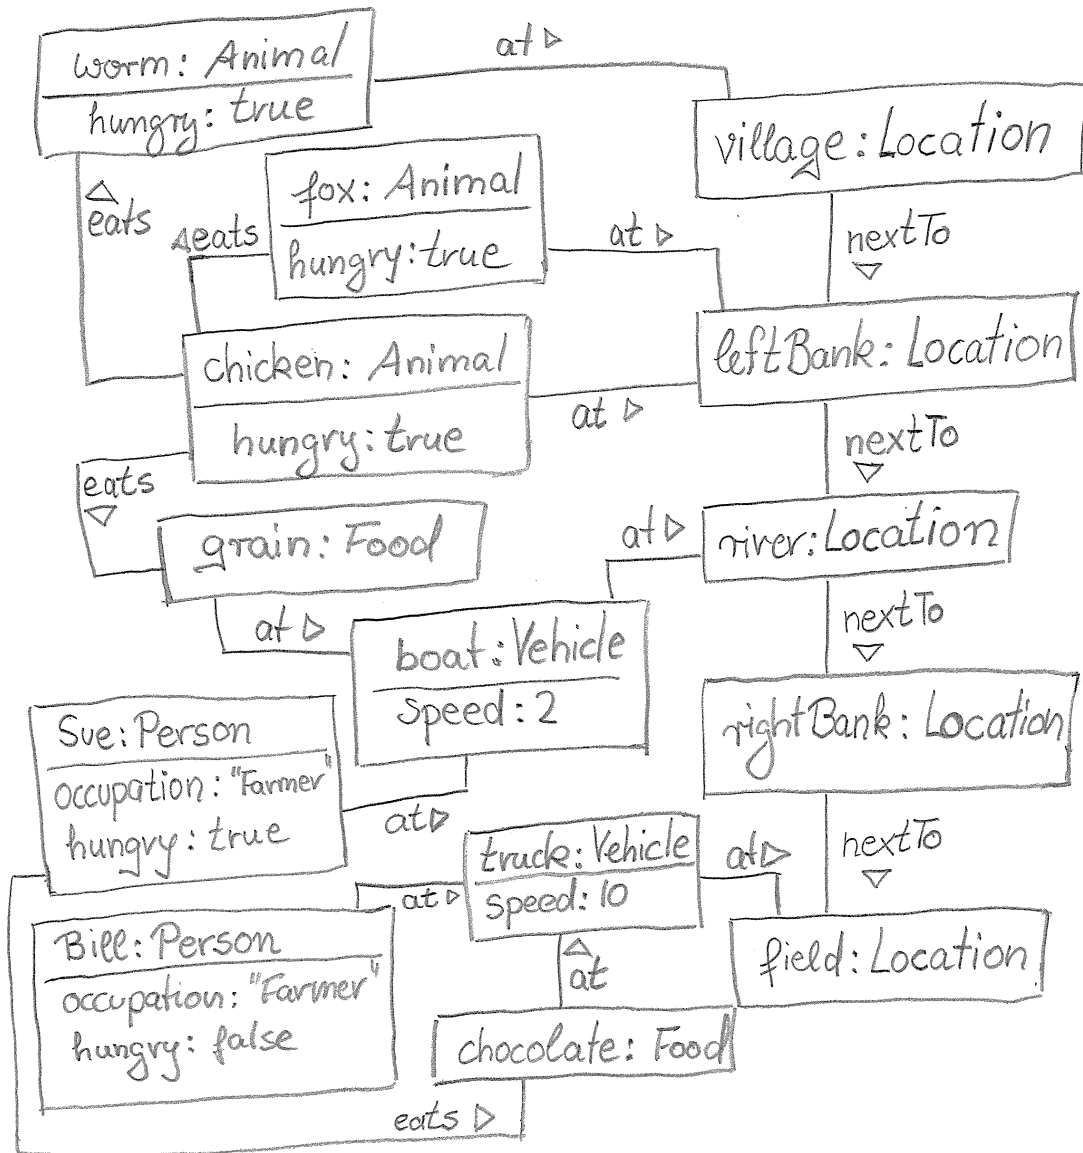 at ▷
worm: Animal
hungry: true
village: Location
eats
fox: Animal
hungry: true
eats
at ▷
nextTo
chicken: Animal
hungry: true
leftBank: Location
at ▷
nextTo
eats
grain: Food
at ▷
river: Location
at ▷
boat: Vehicle
speed: 2
nextTo
Sue: Person
occupation: "Farmer"
hungry: true
rightBank: Location
at ▷
truck: Vehicle
speed: 10
at ▷
nextTo
at ▷
Bill: Person
occupation: "Farmer"
hungry: false
field: Location
at
chocolate: Food
eats ▷